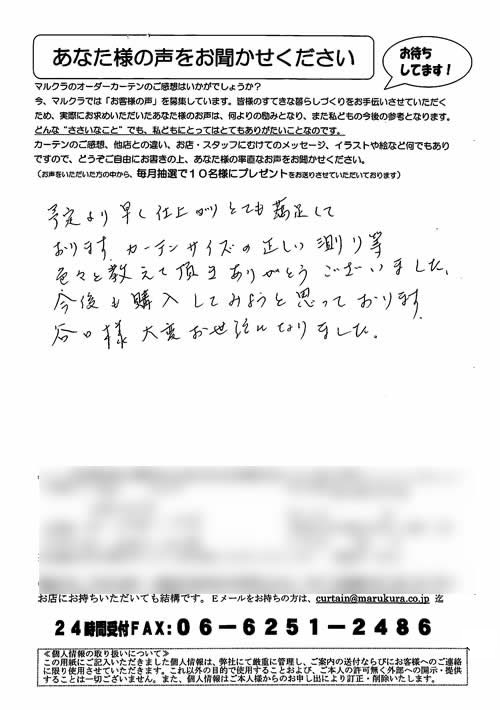 あなた様の声をお聞かせください
お待ち
してます！
マルクラのオーダーカーテンのご感想はいかがでしょうか？
今、マルクラでは「お客様の声」を募集しています。皆様のすてきな暮らしづくりをお手伝いさせていただく
ため、実際にお求めいただいたあなた様のお声は、何よりの励みとなり、また私どもの今後の参考となります。
どんな“ささいなこと”でも、私どもにとってはとてもありがたいことなのです。
カーテンのご感想、他店との違い、お店・スタッフにむけてのメッセージ、イラストや絵など何でもあり
ですので、どうぞご自由にお書きの上、あなた様の率直なお声をお聞かせください。
（お声をいただいた方の中から、毎月抽選で１０名様にプレゼントをお送りさせていただいております）
予定より早く仕上がりとても満足して
おります。カーテンサイズの正しい測り等
色々と教えて頂きありがとうございました。
今後も購入してみようと思っております。
谷口様大変お世話になりました。
お店にお持ちいただいても結構です。Ｅメールをお持ちの方は、curtain@marukura.co.jp 迄
２４時間受付FAX：０６－６２５１－２４８６
≪個人情報の取り扱いについて≫
この用紙にご記入いただきました個人情報は、弊社にて厳重に管理し、ご案内の送付ならびにお客様へのご連絡
に限り使用させていただきます。これ以外の目的で使用することおよび、ご本人の許可無く外部への開示・提供
することは一切ございません。また、個人情報はご本人様からのお申し出により訂正・削除いたします。